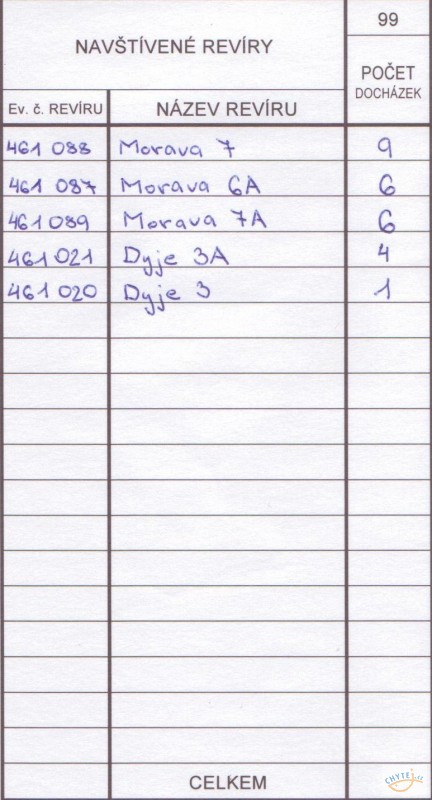 99
NAVŠTÍVENÉ REVÍRY
POČET
DOCHÁZEK
Ev. č. REVÍRU NÁZEV REVÍRU
461 088 Morava 7 9
461 087 Morava 6A 6
461 089 Morava 7A 6
461 021 Dyje 3A 4
461 020 Dyje 3 1
CELKEM
CHYTEJ.cz